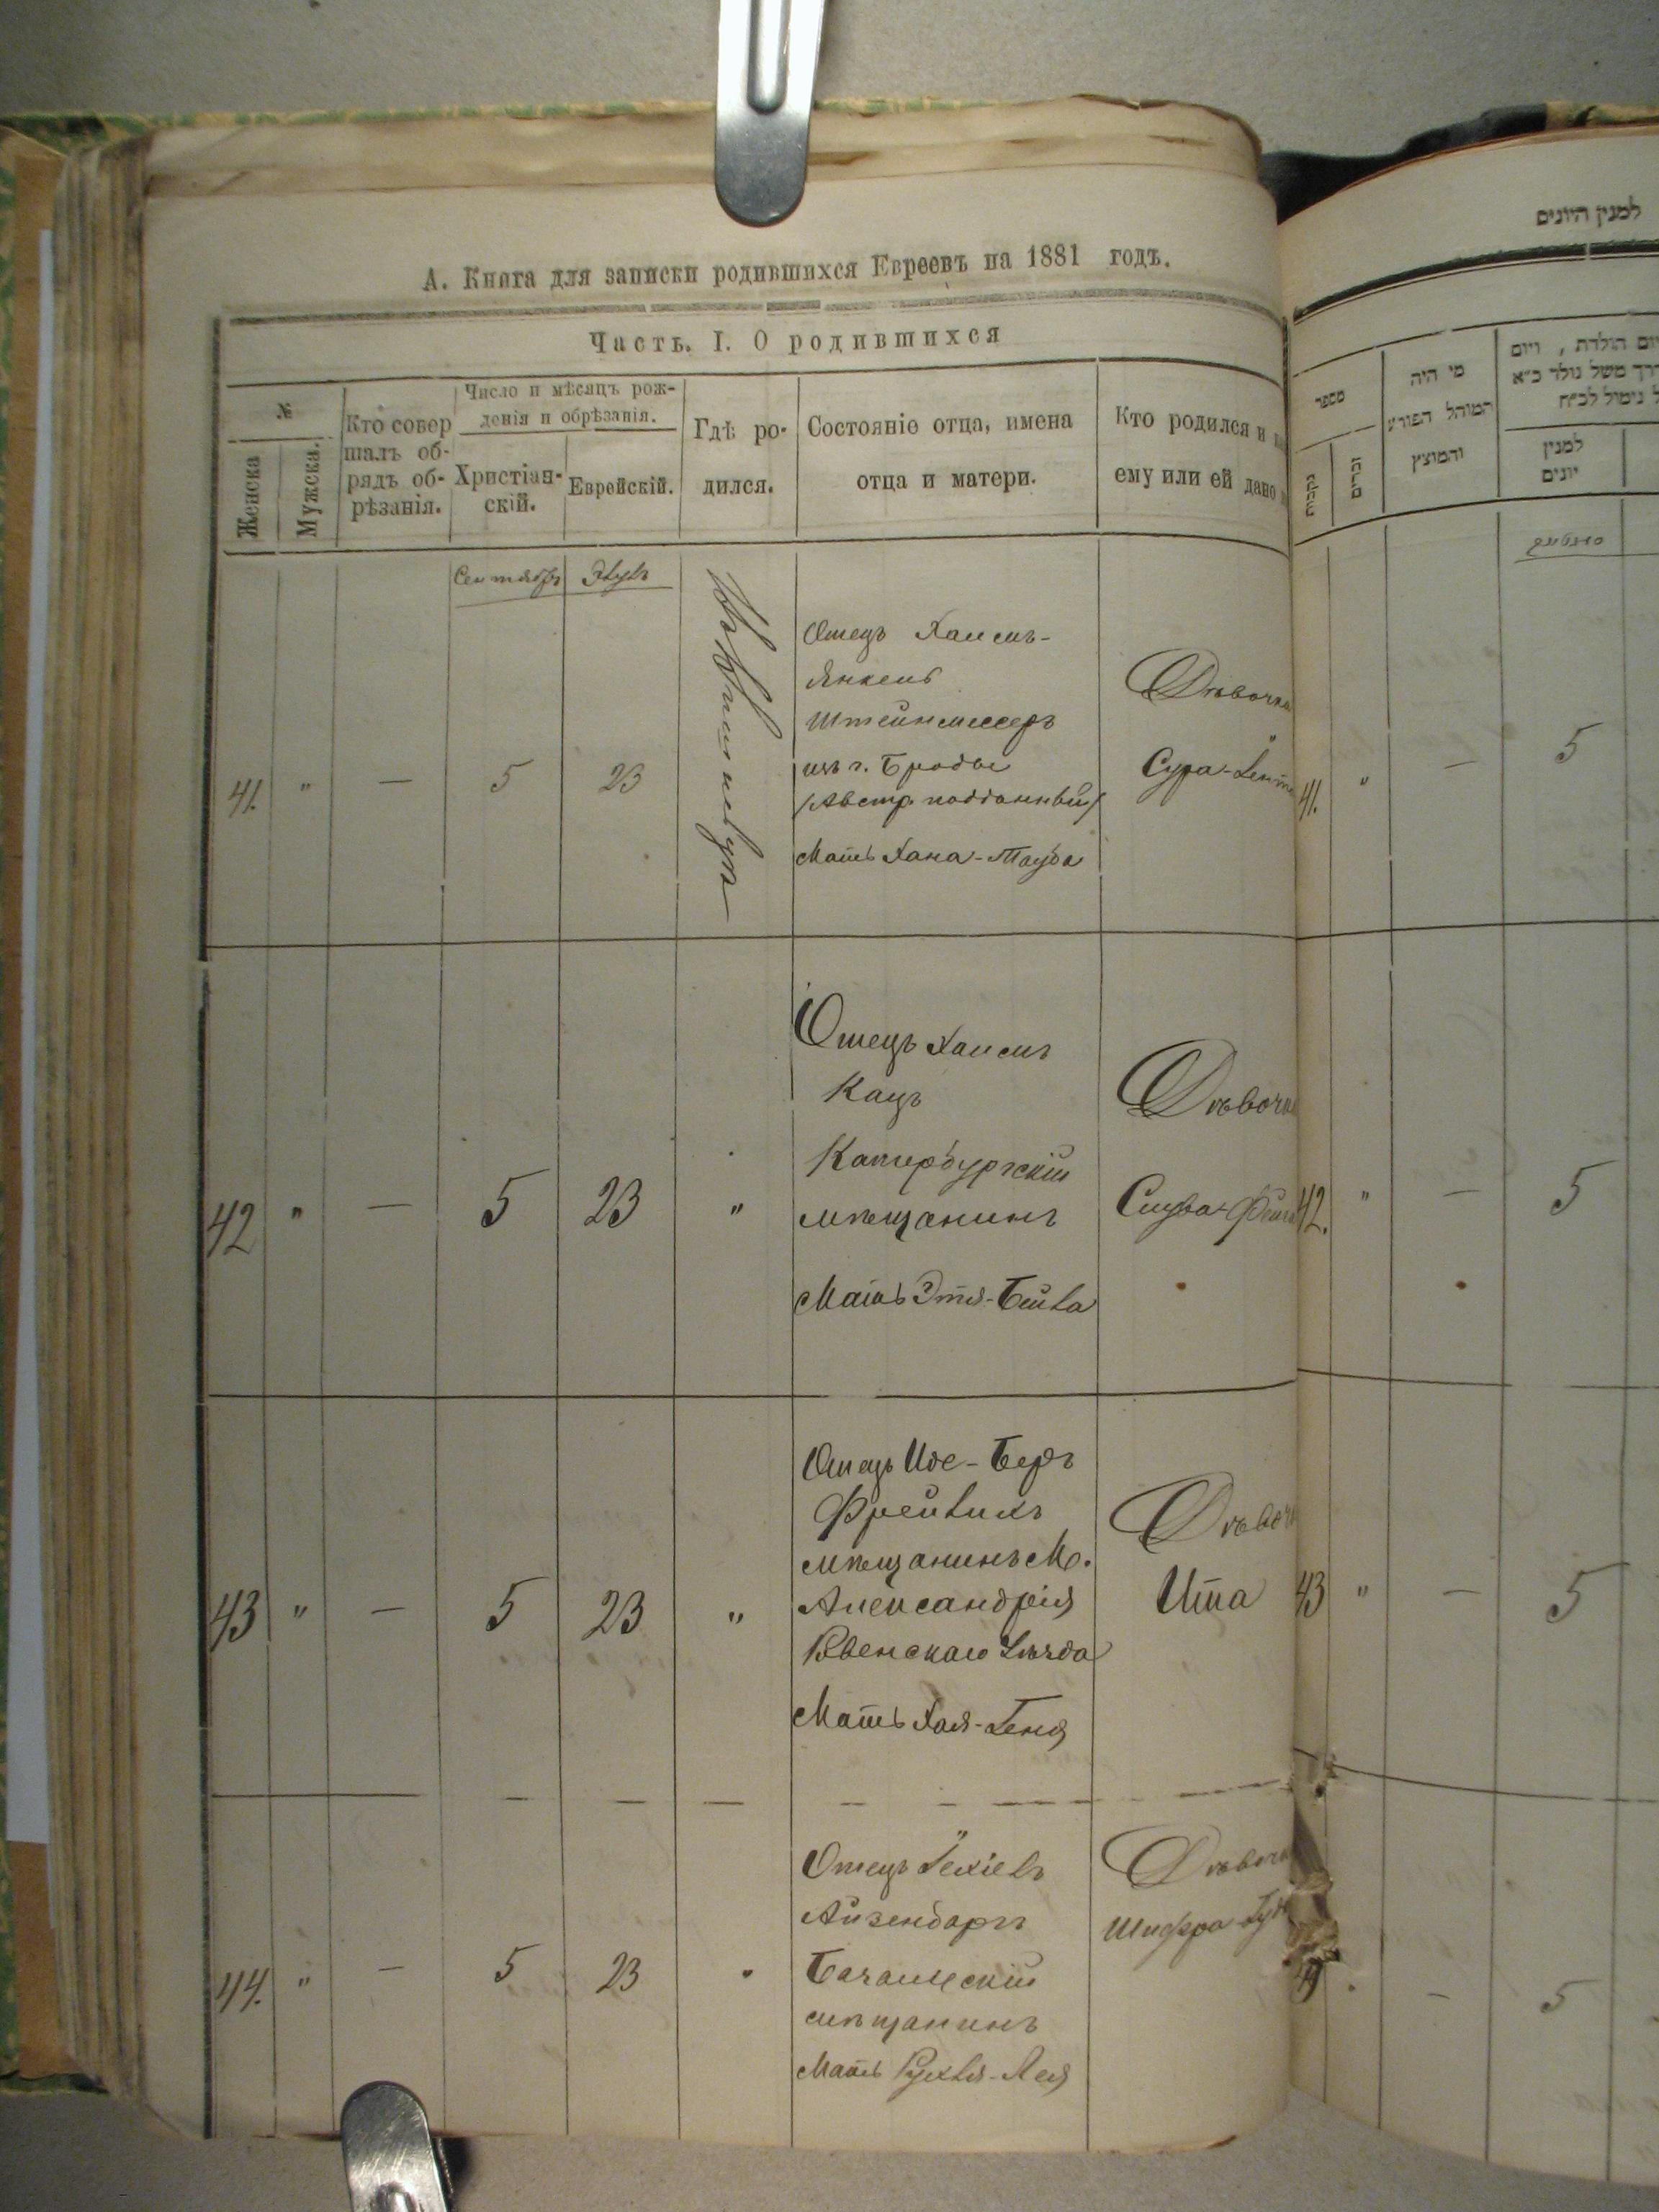 А. Книга для записки родившихся Евреевъ на 1881 годъ.
Часть. I. О родившихся
№
Женска
Мужска.
Кто совер
шалъ об-
рядъ об-
рѣзанія.
Число и мѣсяцъ рож-
денія и обрѣзанія.
Христіан-
скій.
Еврейскій.
Гдѣ ро-
дился.
Состояніе отца, имена
отца и матери.
Кто родился и
ему или ей дано
Сентябрь Элулъ
41. " — 5 23
Отецъ Хаимъ-
Янкель
Штейнмессеръ
изъ г. Броды
/Австр. подданный/
Мать Хана-Тауба
Дѣвочка
Сура-
42 " — 5 23 "
Отецъ Хаимъ
Кацъ
Катербургскій
мѣщанинъ
Мать Этя-Бейла
Дѣвочка
43 " — 5 23 "
Отецъ Иде-Беръ
Фрейлихъ
мѣщанинъ М.
Александрія
Ровенскаго Уѣзда
Мать Хая-Геня
Дѣвочк
Ита
44. " — 5 23 "
Отецъ Іехіелъ
Айзенбаргъ
мѣщанинъ
Мать Рухля-Лея
Дѣвочк
Шифра
למנין היונים
מספר
נקבות
זכרים
מי היה
המוהל הפורע
והמוצץ
יום הולדת , ויום
למנין
יונים
41. " — 5
42. " — 5
43 " — 5
— 5